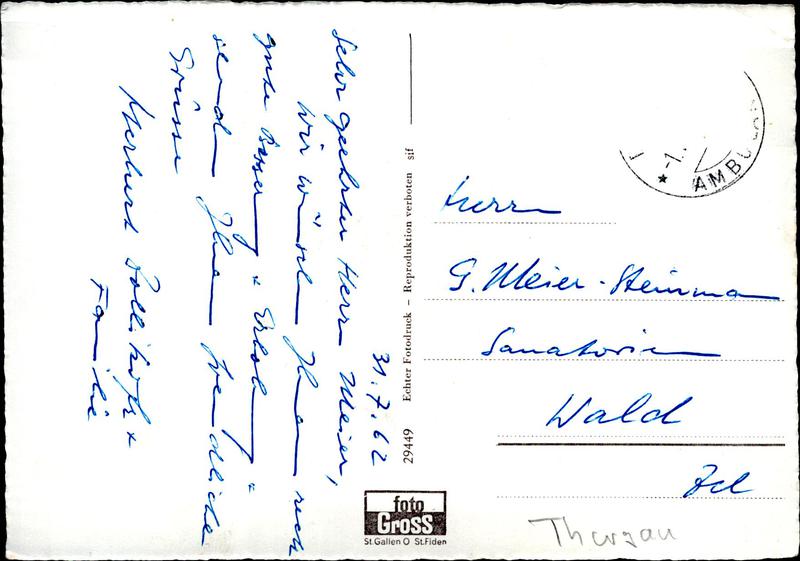 31.7.62
Sehr geehrter Herr Meier,
Wir wünschen Ihnen recht
gute Besserung & Erholung &
senden Ihnen freundliche
Grüsse
Herbert &
Familie
29449 Echter Fotodruck – Reproduktion verboten sif
AMBULAN
Herrn
G. Meier-Steinmann
Sanatorium
Wald
Zch
Thurgau
foto
GROSS
St.Gallen O St.Fiden